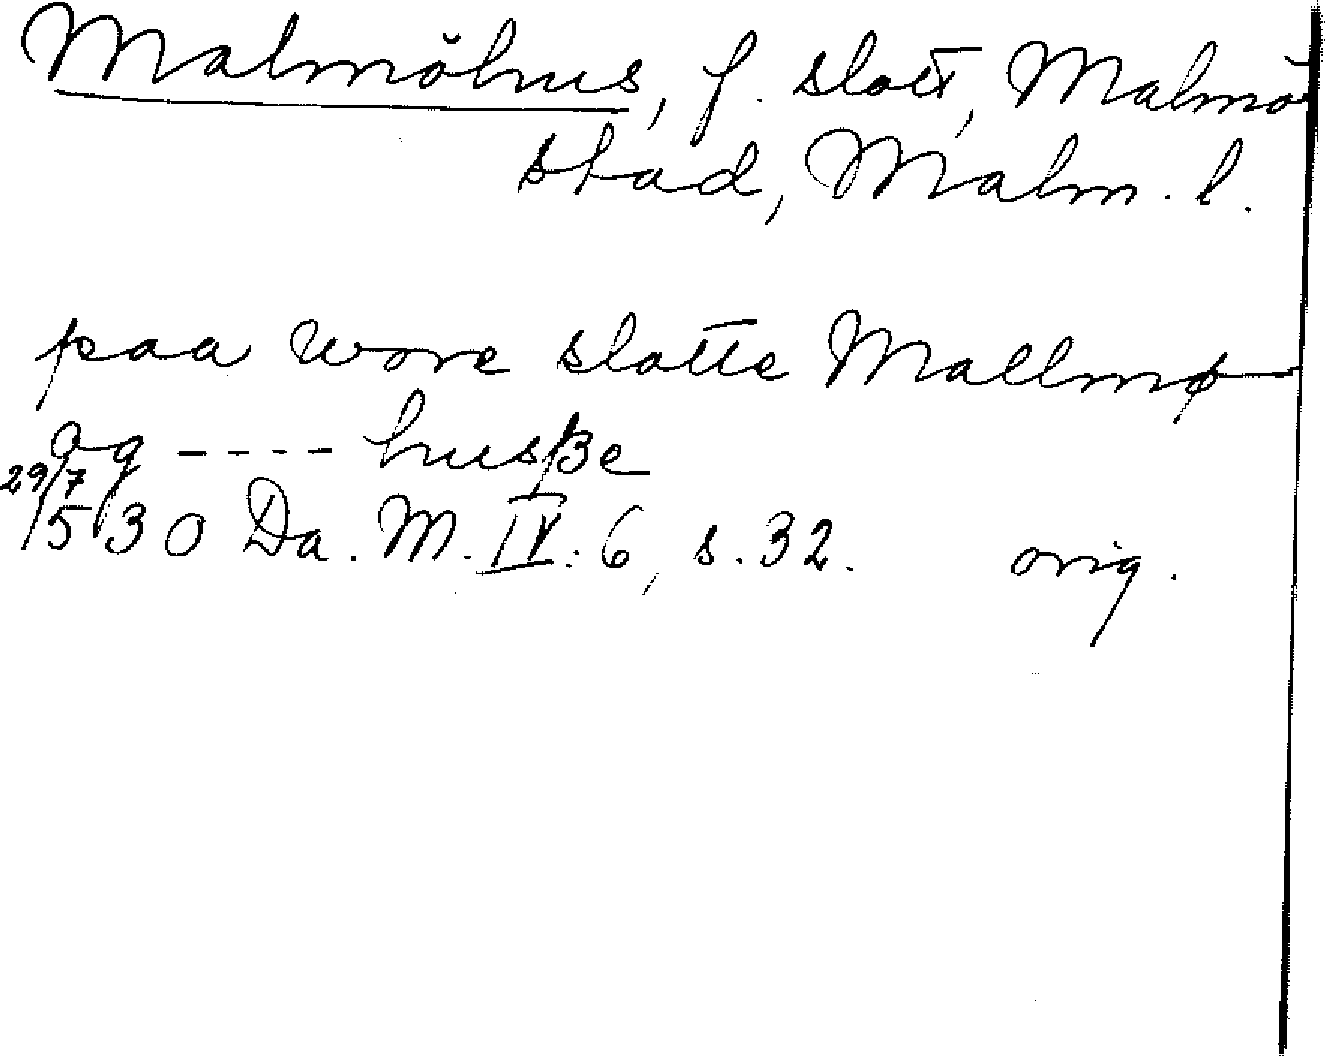 Malmöhus, f. slott, Malmö
stad, Malm. l.
paa wore slotte Mallmø
og ---- husße
29/7
1530 Da. M. IV: 6, s. 32. orig.